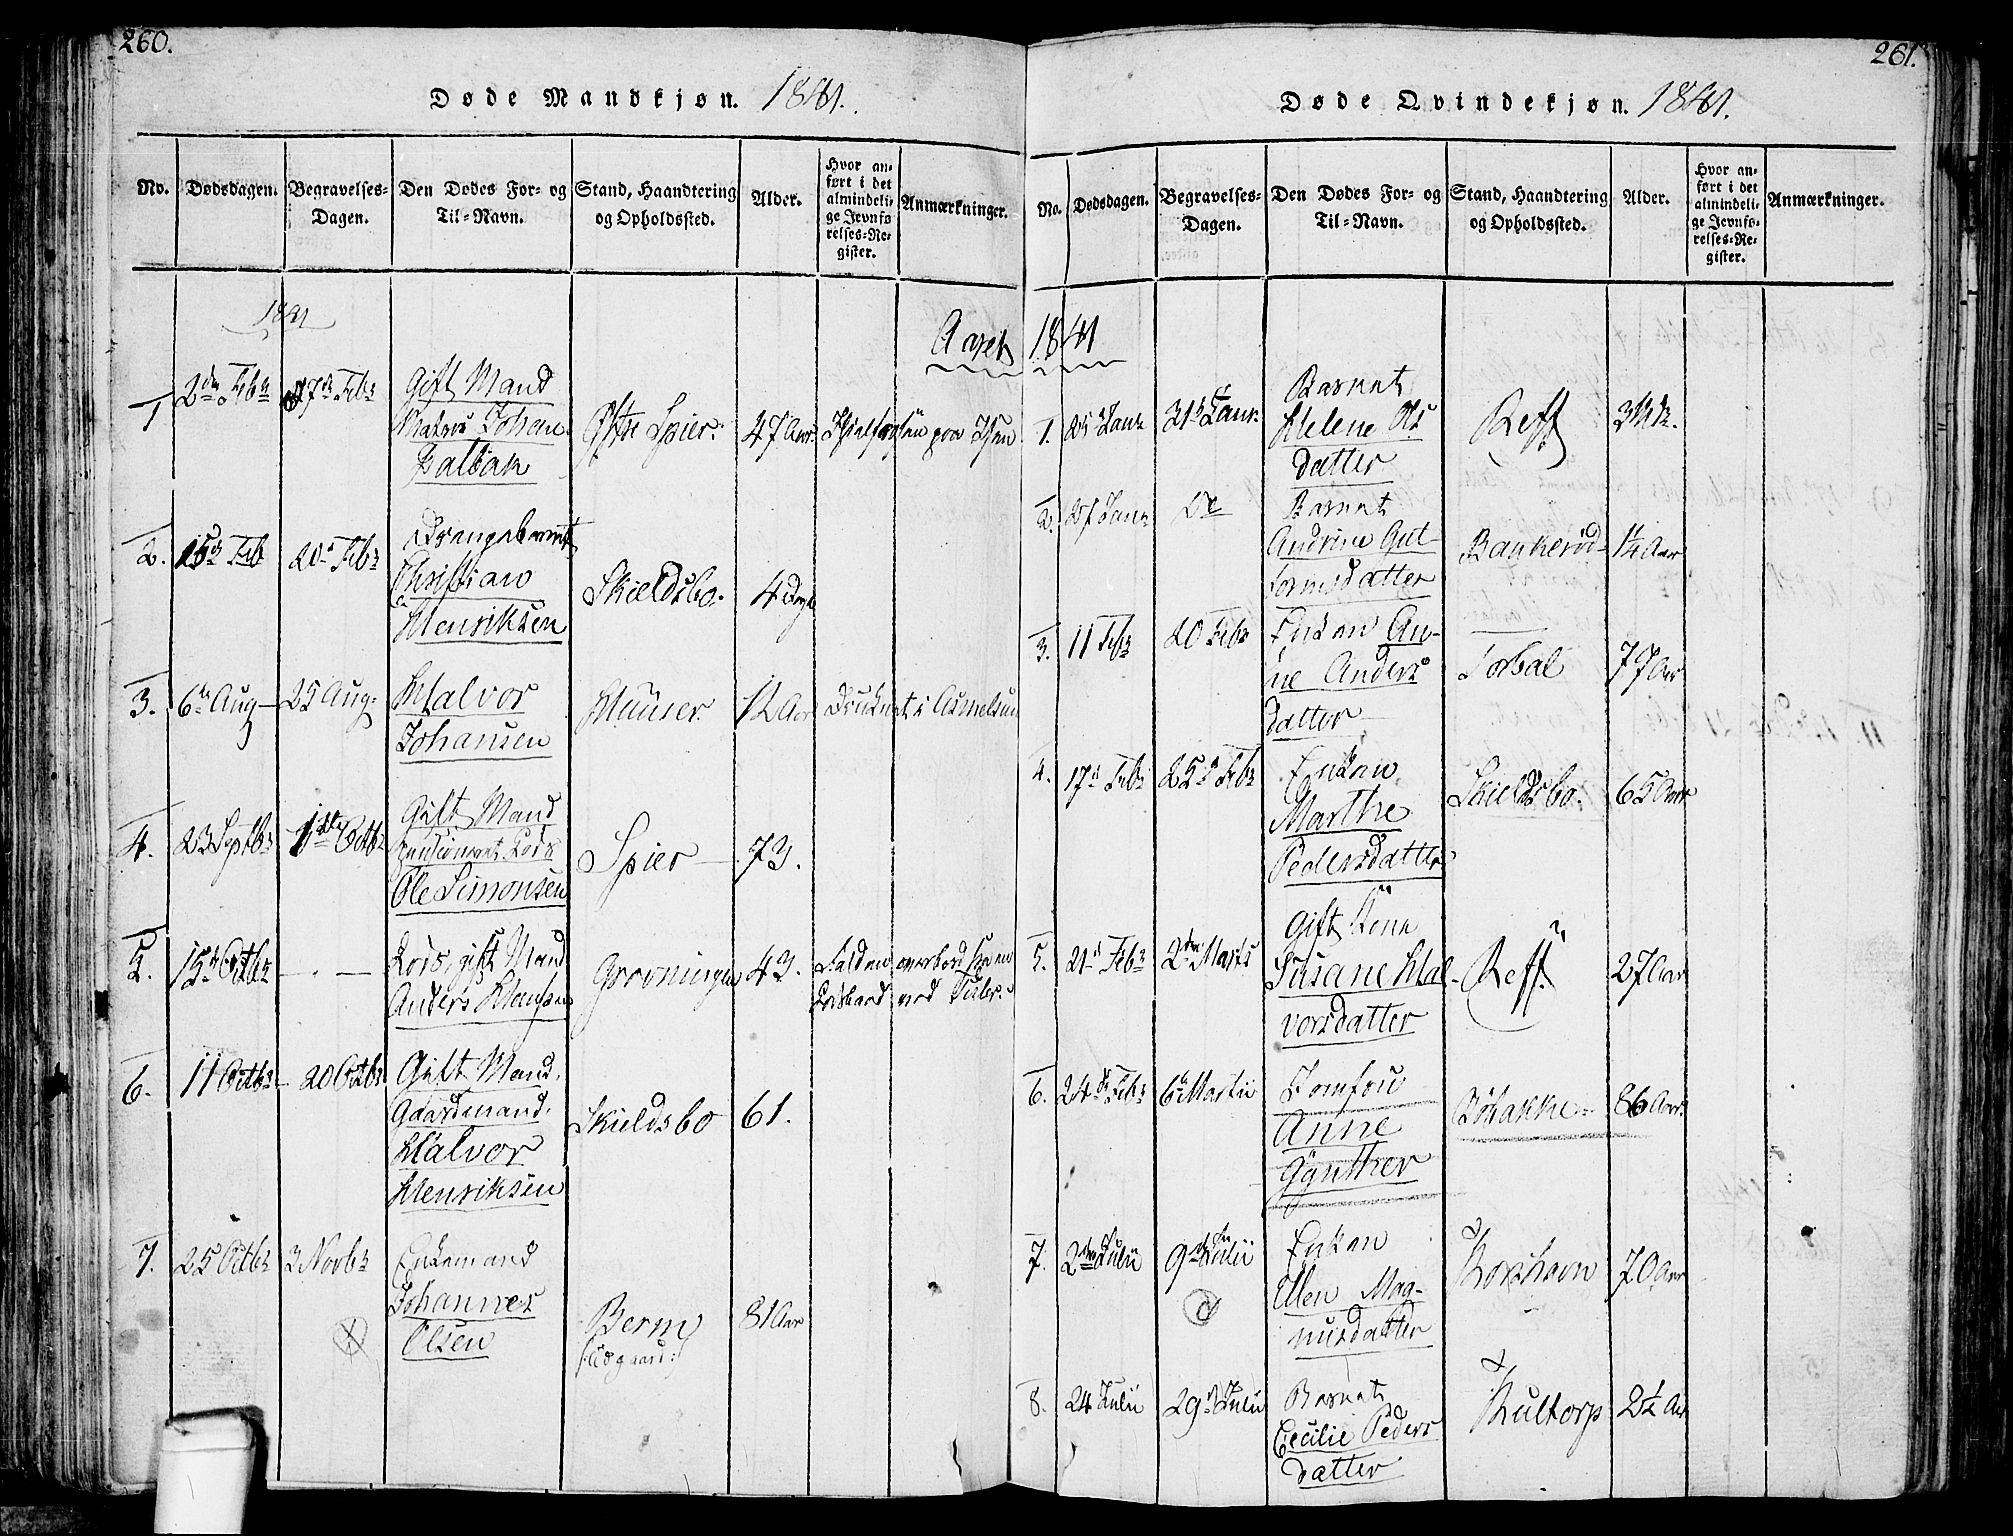 260.
Døde Mandkjøn. 1841.
No. Dødsdagen. Begravelses-Dagen. Den Dødes For- og Til-Navn. Stand, Haandtering og Opholdssted. Alder. Hvor anført i det almindelige Jevnførelses-Register. Anmærkninger.
1841
1 2den Febr 17de Febr Gift Mand
Johan
Balbak
Spier. 47 Aar paa Isen
2. 15de Feb 20de Febr Drengebarnet
Christian
Henriksen
Skieldsbo. 4 Dage
3. 6te Aug 25 Aug. Halvor
Johansen
12 Aar Druknet i
4. 23 Septbr 1ste Octbr Gift Mand
Lods
Ole Simonsen
Spier 73.
5. 15de Octbr — . — Lods, gift Mand
Anders Hansen
Grønningen 43. Falden overbord fra en
Lodsbaad ved
6. 11 Octbr 20 Octbr Gift Mand,
Gaardmand,
Halvor
Henriksen
Skieldsbo 61.
7. 25 Octbr 3 Novbr Enkemand
Johannes
Olsen
Berm
81 Aar
261.
Døde Qvindekjøn. 1841.
No. Dødsdagen. Begravelses-Dagen. Den Dødes For- og Til-Navn. Stand, Haandtering og Opholdssted. Alder. Hvor anført i det almindelige Jevnførelses-Register. Anmærkninger.
Aaret 1841
1. 25 Janr 31te Janr. Barnet
Helene Ols
datter
Reff
2. 27 Janr do Barnet
Andrine Gut-
tormsdatter
Bankerød 1¼ Aar
3. 11 Febr 20 Febr Enken An-
ne Anders
datter
Torbal 77 Aar
4. 17de Febr 25de Febr Enken
Marthe
Pedersdatter
Skieldsbo. 65 Aar
5. 21de Febr 2den Marts Gift Kone
Susane Hal-
vorsdatter
Reff. 27 Aar
6. 24de Febr 6te Martii Jomfru
Anne
Gynther
86 Aar
7. 2den Julii 9de Julii Enken
Ellen Mag-
nusdatter
70 Aar
8. 24 Julii 29de Julii Barnet
Cecilie Peders
datter
Hultorp 2½ Aar